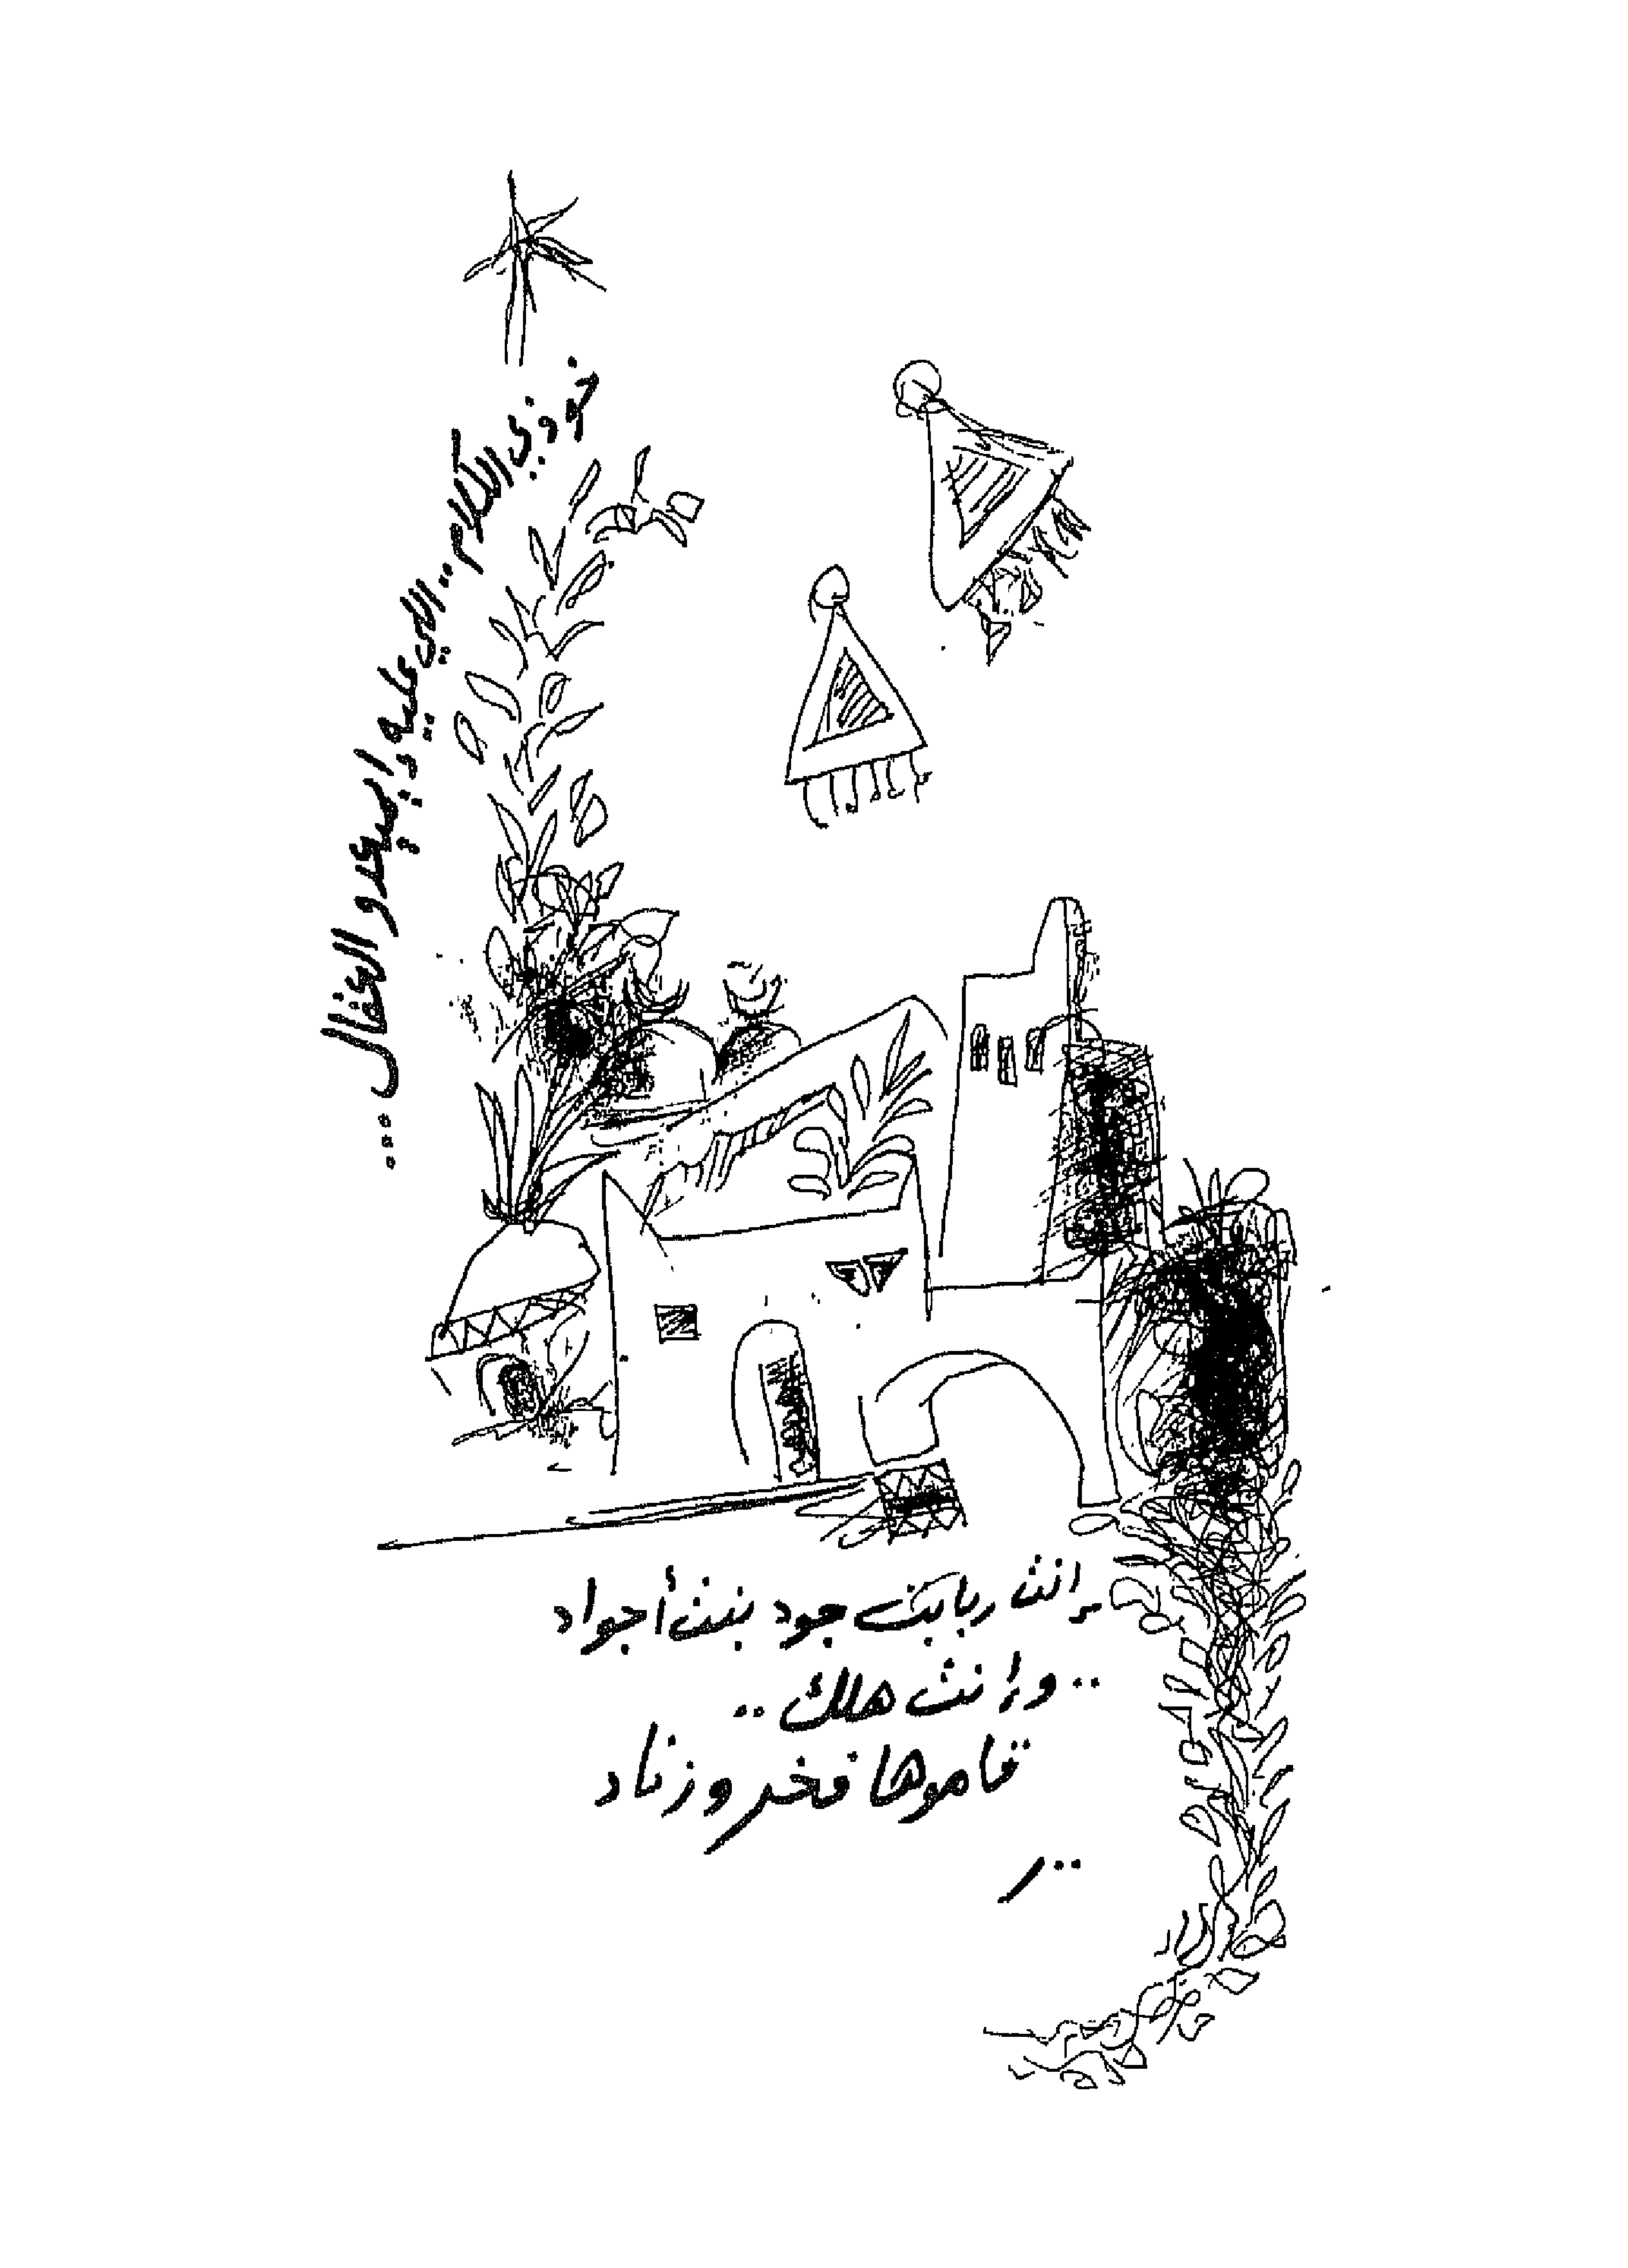 خوذي الكلام .. اللي عليه إيعدو العقال ...
إنت ربايت جود بنت أجواد
.. وإنت هلك ..
قاموها فخر وزناد